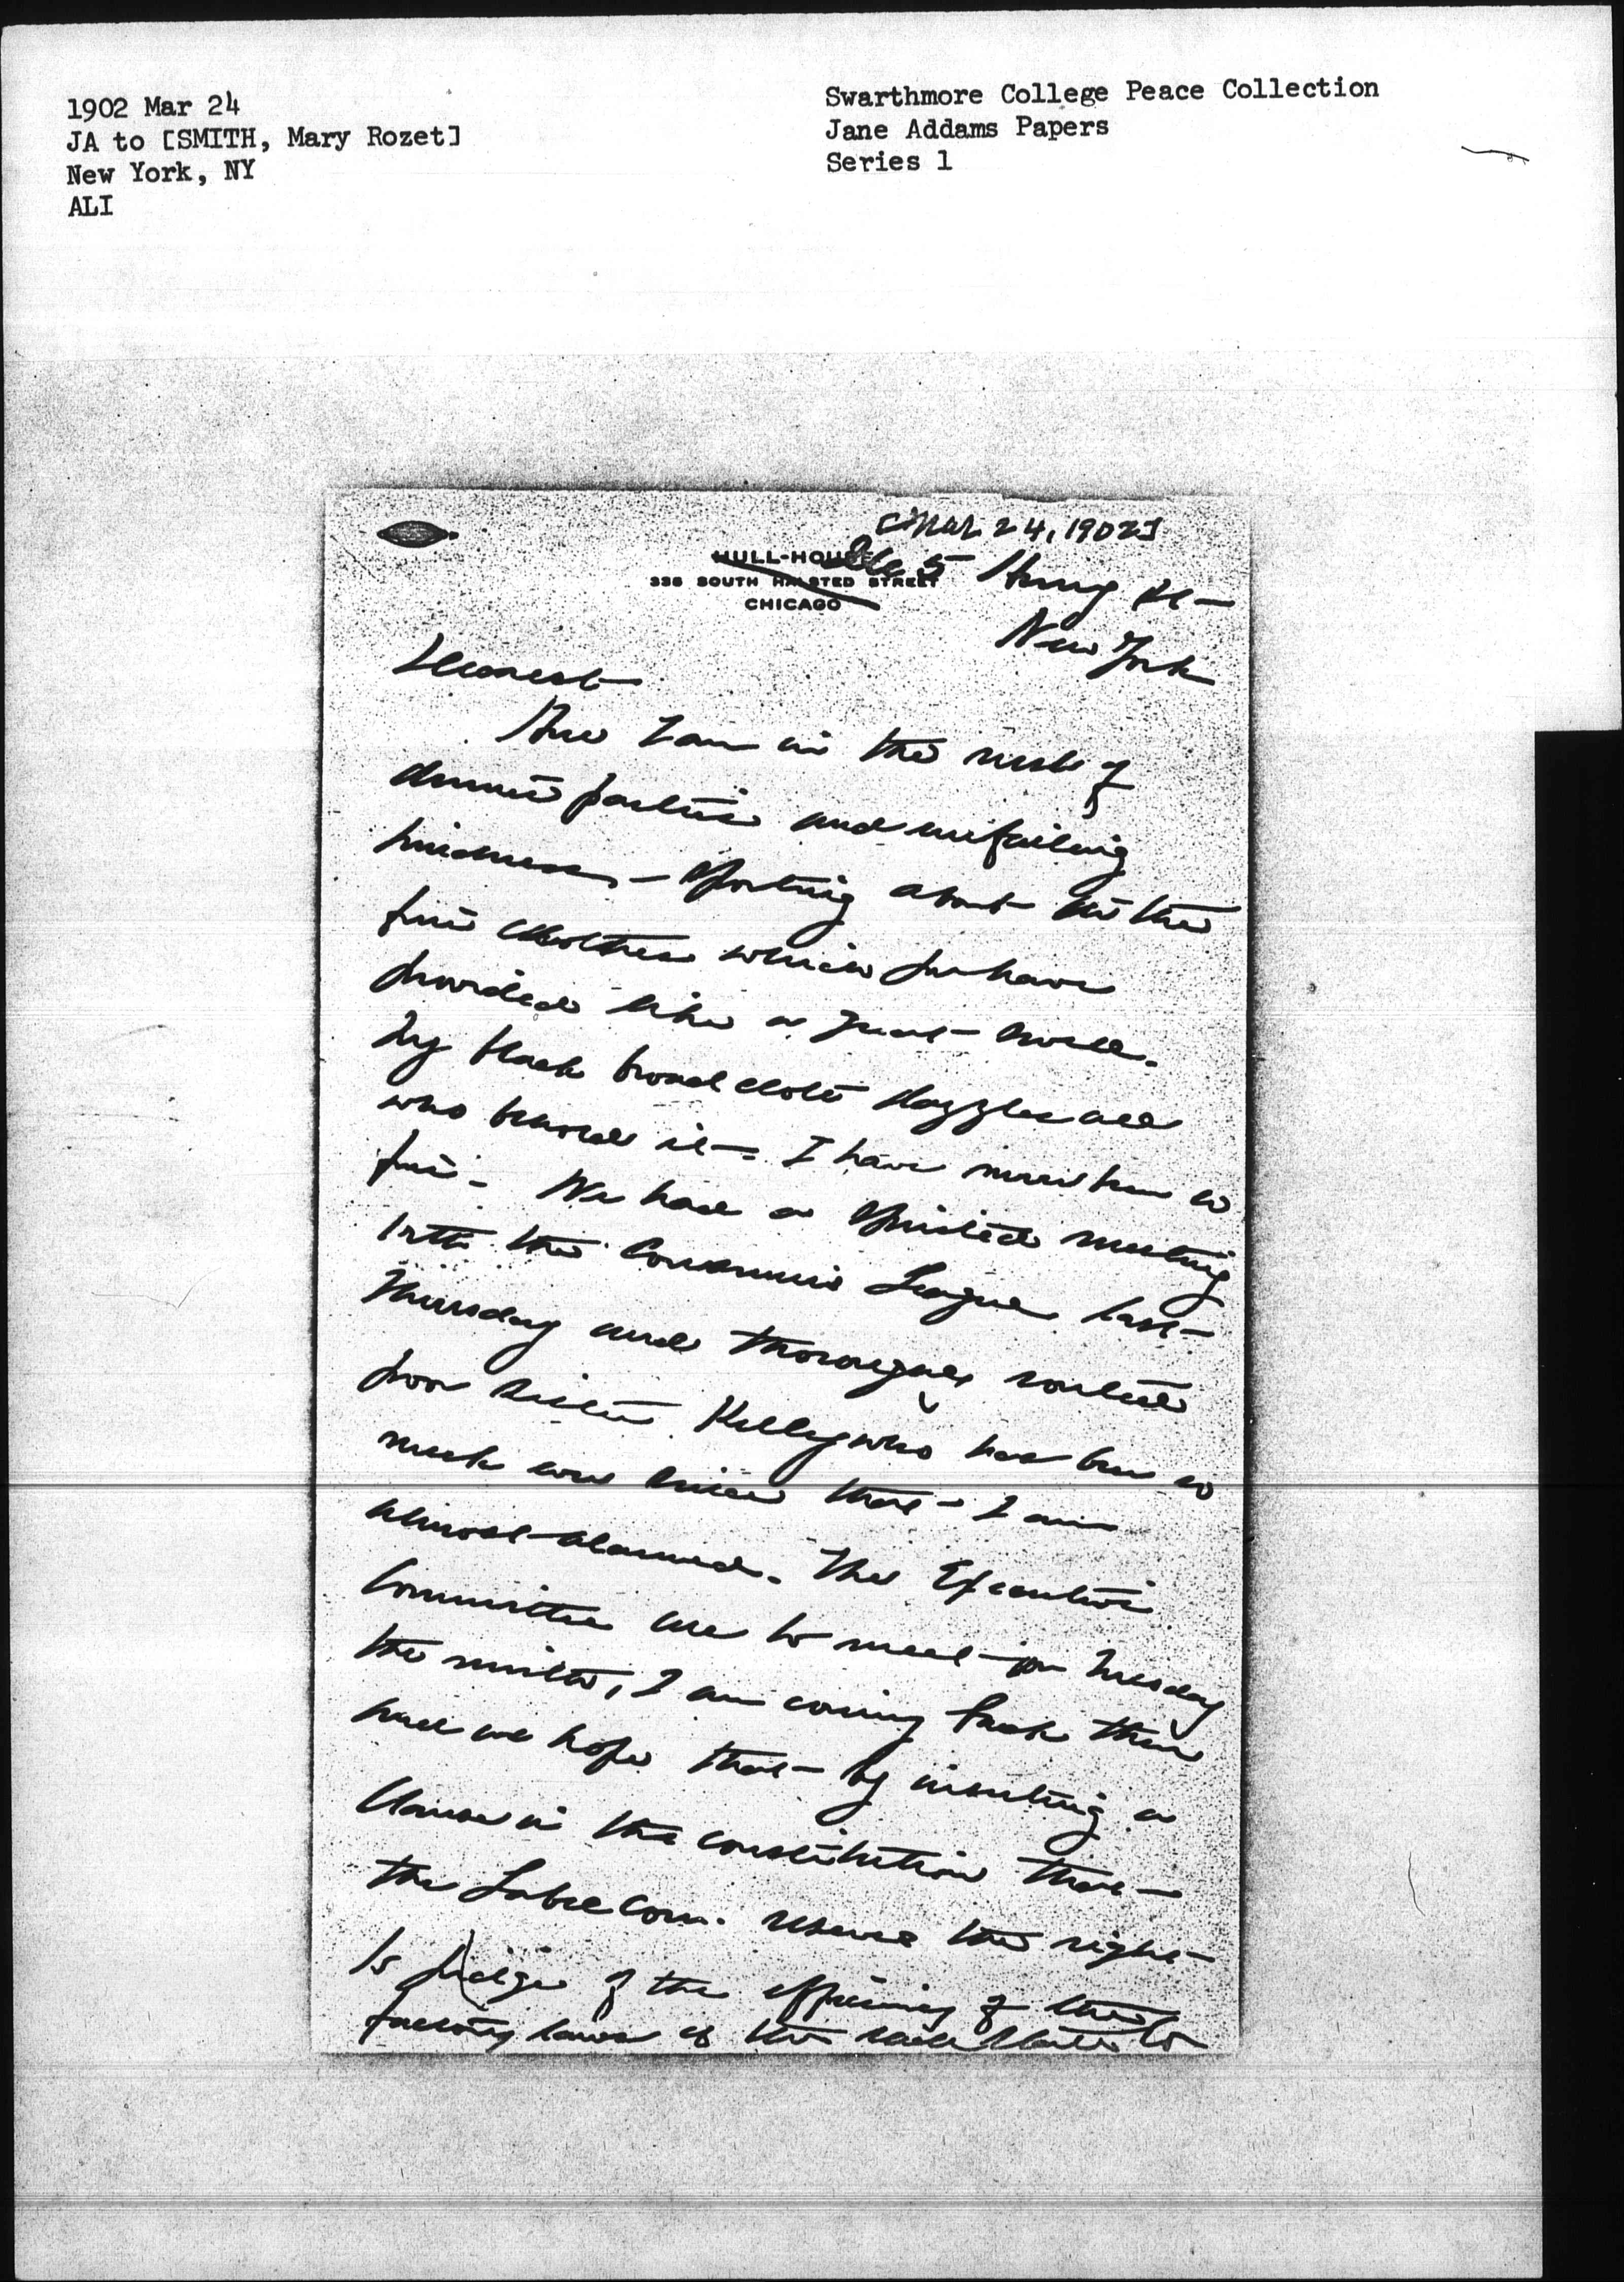 1902 Mar 24
JA to [SMITH, Mary Rozet]
New York, NY
ALI
Swarthmore College Peace Collection
Jane Addams Papers
Series 1
[Mar. 24, 1902]
HULL-HOUSE
335 SOUTH HALSTED STREET
CHICAGO
265 Henry St
New York
Dearest
Here I am in the midst of
dinner parties and unfailing
kindness, - sporting about in the
fine clothes which you have
provided like a great swell.
My black broad cloth dazzles all
who behold it - I have never been so
fine - We had a spirited meeting
with the Consumers League last
Thursday and thoroughly routed
poor Sister Kelley who has been so
meek and since that - I am
almost alarmed. The Executive
Committee are to meet on Tuesday
the I am coming back then
and we hope that by inserting a
clause in the constitution that
the Label Com. reserve the right
to judge of the efficiency of the
factory laws of the